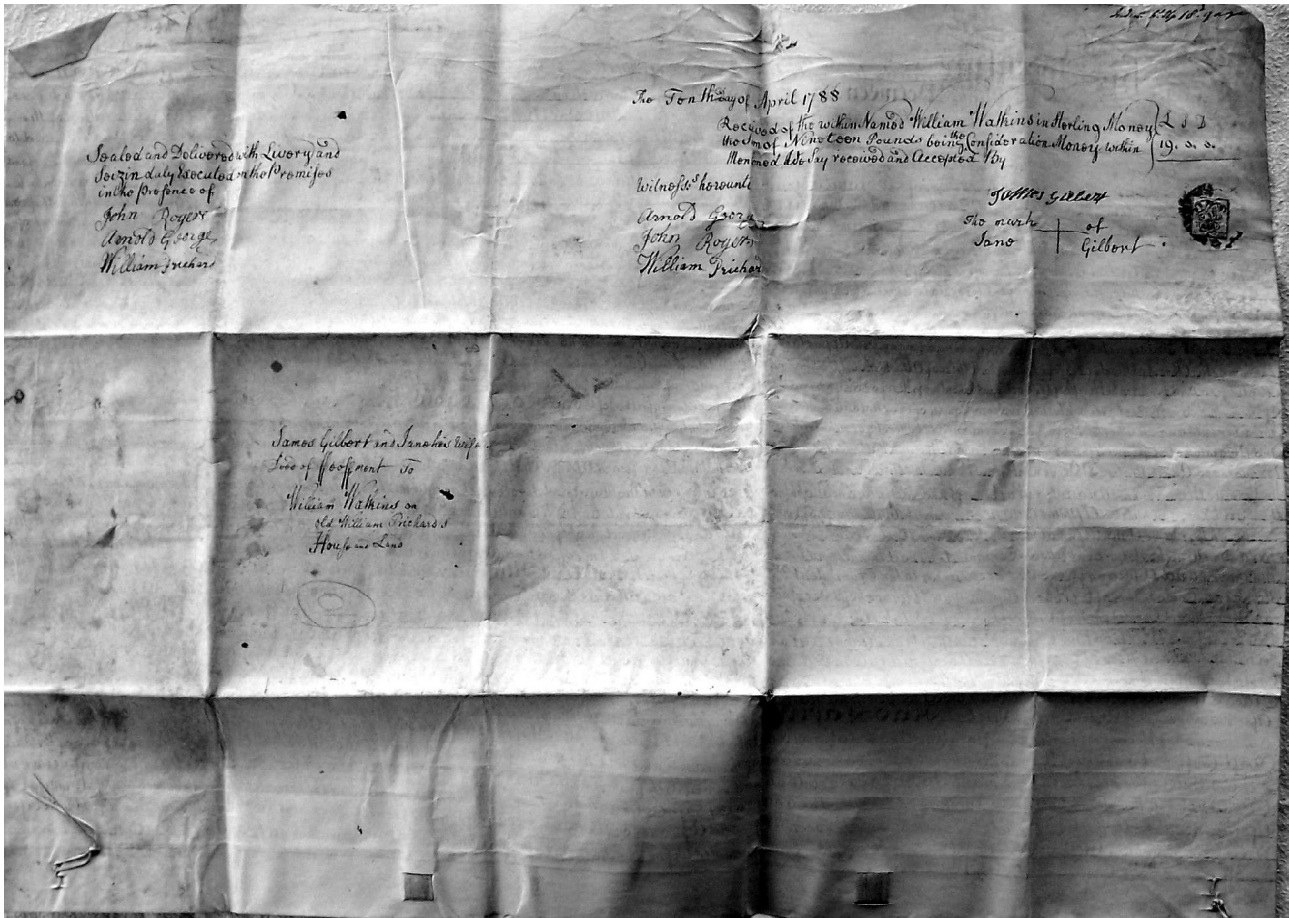 Sealed and Delivered with Livery and
Seizin duly Executed on the Premises
in the Presence of
John Rogers
Arnold George
William Prichard
The Tenth day of April 1788
Received of the within Named William Watkins in Sterling Money
the Sum of Nineteen Pounds being the Consideration Money within
Menconed I do Say received and Accepted by
£ S D
19. 0. 0.
Witness's hereunto
Arnold George
John Rogers
William Prichard
James Gilbert
The mark of
Jane Gilbert
James Gilbert and Jane his Wife
Deed of ffeoffment To
William Watkins on
old William Prichards
House and Land